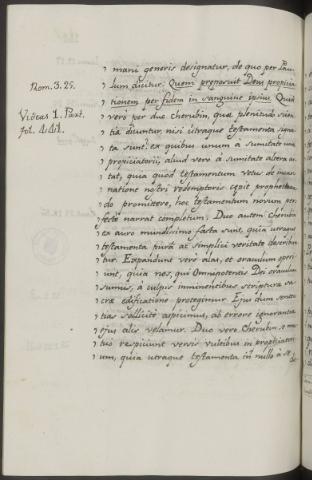 mani generis designatur, de quo per Pau-
Rom. 3. 25.
lum dicitur. Quem proposuit Deus propitia
tionem per fidem in sanguine ipsius. Quid
Videas 1. Part.
vero per duo cherubin, quæ plenitudo scien
fol.
tiæ dicuntur, nisi utraque testamenta signa
ta sunt? ex quibus unum à sumitate una
propiciatorii, aliud vero à sumitate altera
tat, quia quod testamentum vetus de incar
natione nostri redemptoris cepit prophetan
do promittere, hoc testamentum novum per
fectè narrat completum. Duo autem cherubin
ex auro mundissimo facta sunt, quia utraque
testamenta pura ac simplici veritate describun
tur. Expandunt vero alas, et oraculum operi
unt, quia nos, qui Omnipotentis Dei oraculum
sumus, à culpis imminentibus scriptura sa
cra edificatione protegimur. Ejus dum senten
tias sollicitè aspicimus, ab errore ignorantiæ
ejus alis velamur. Duo vero Cherubin se mu
tuo respiciunt versis vultibus in propiciatori
um, quia utraque testamenta in nullo à se